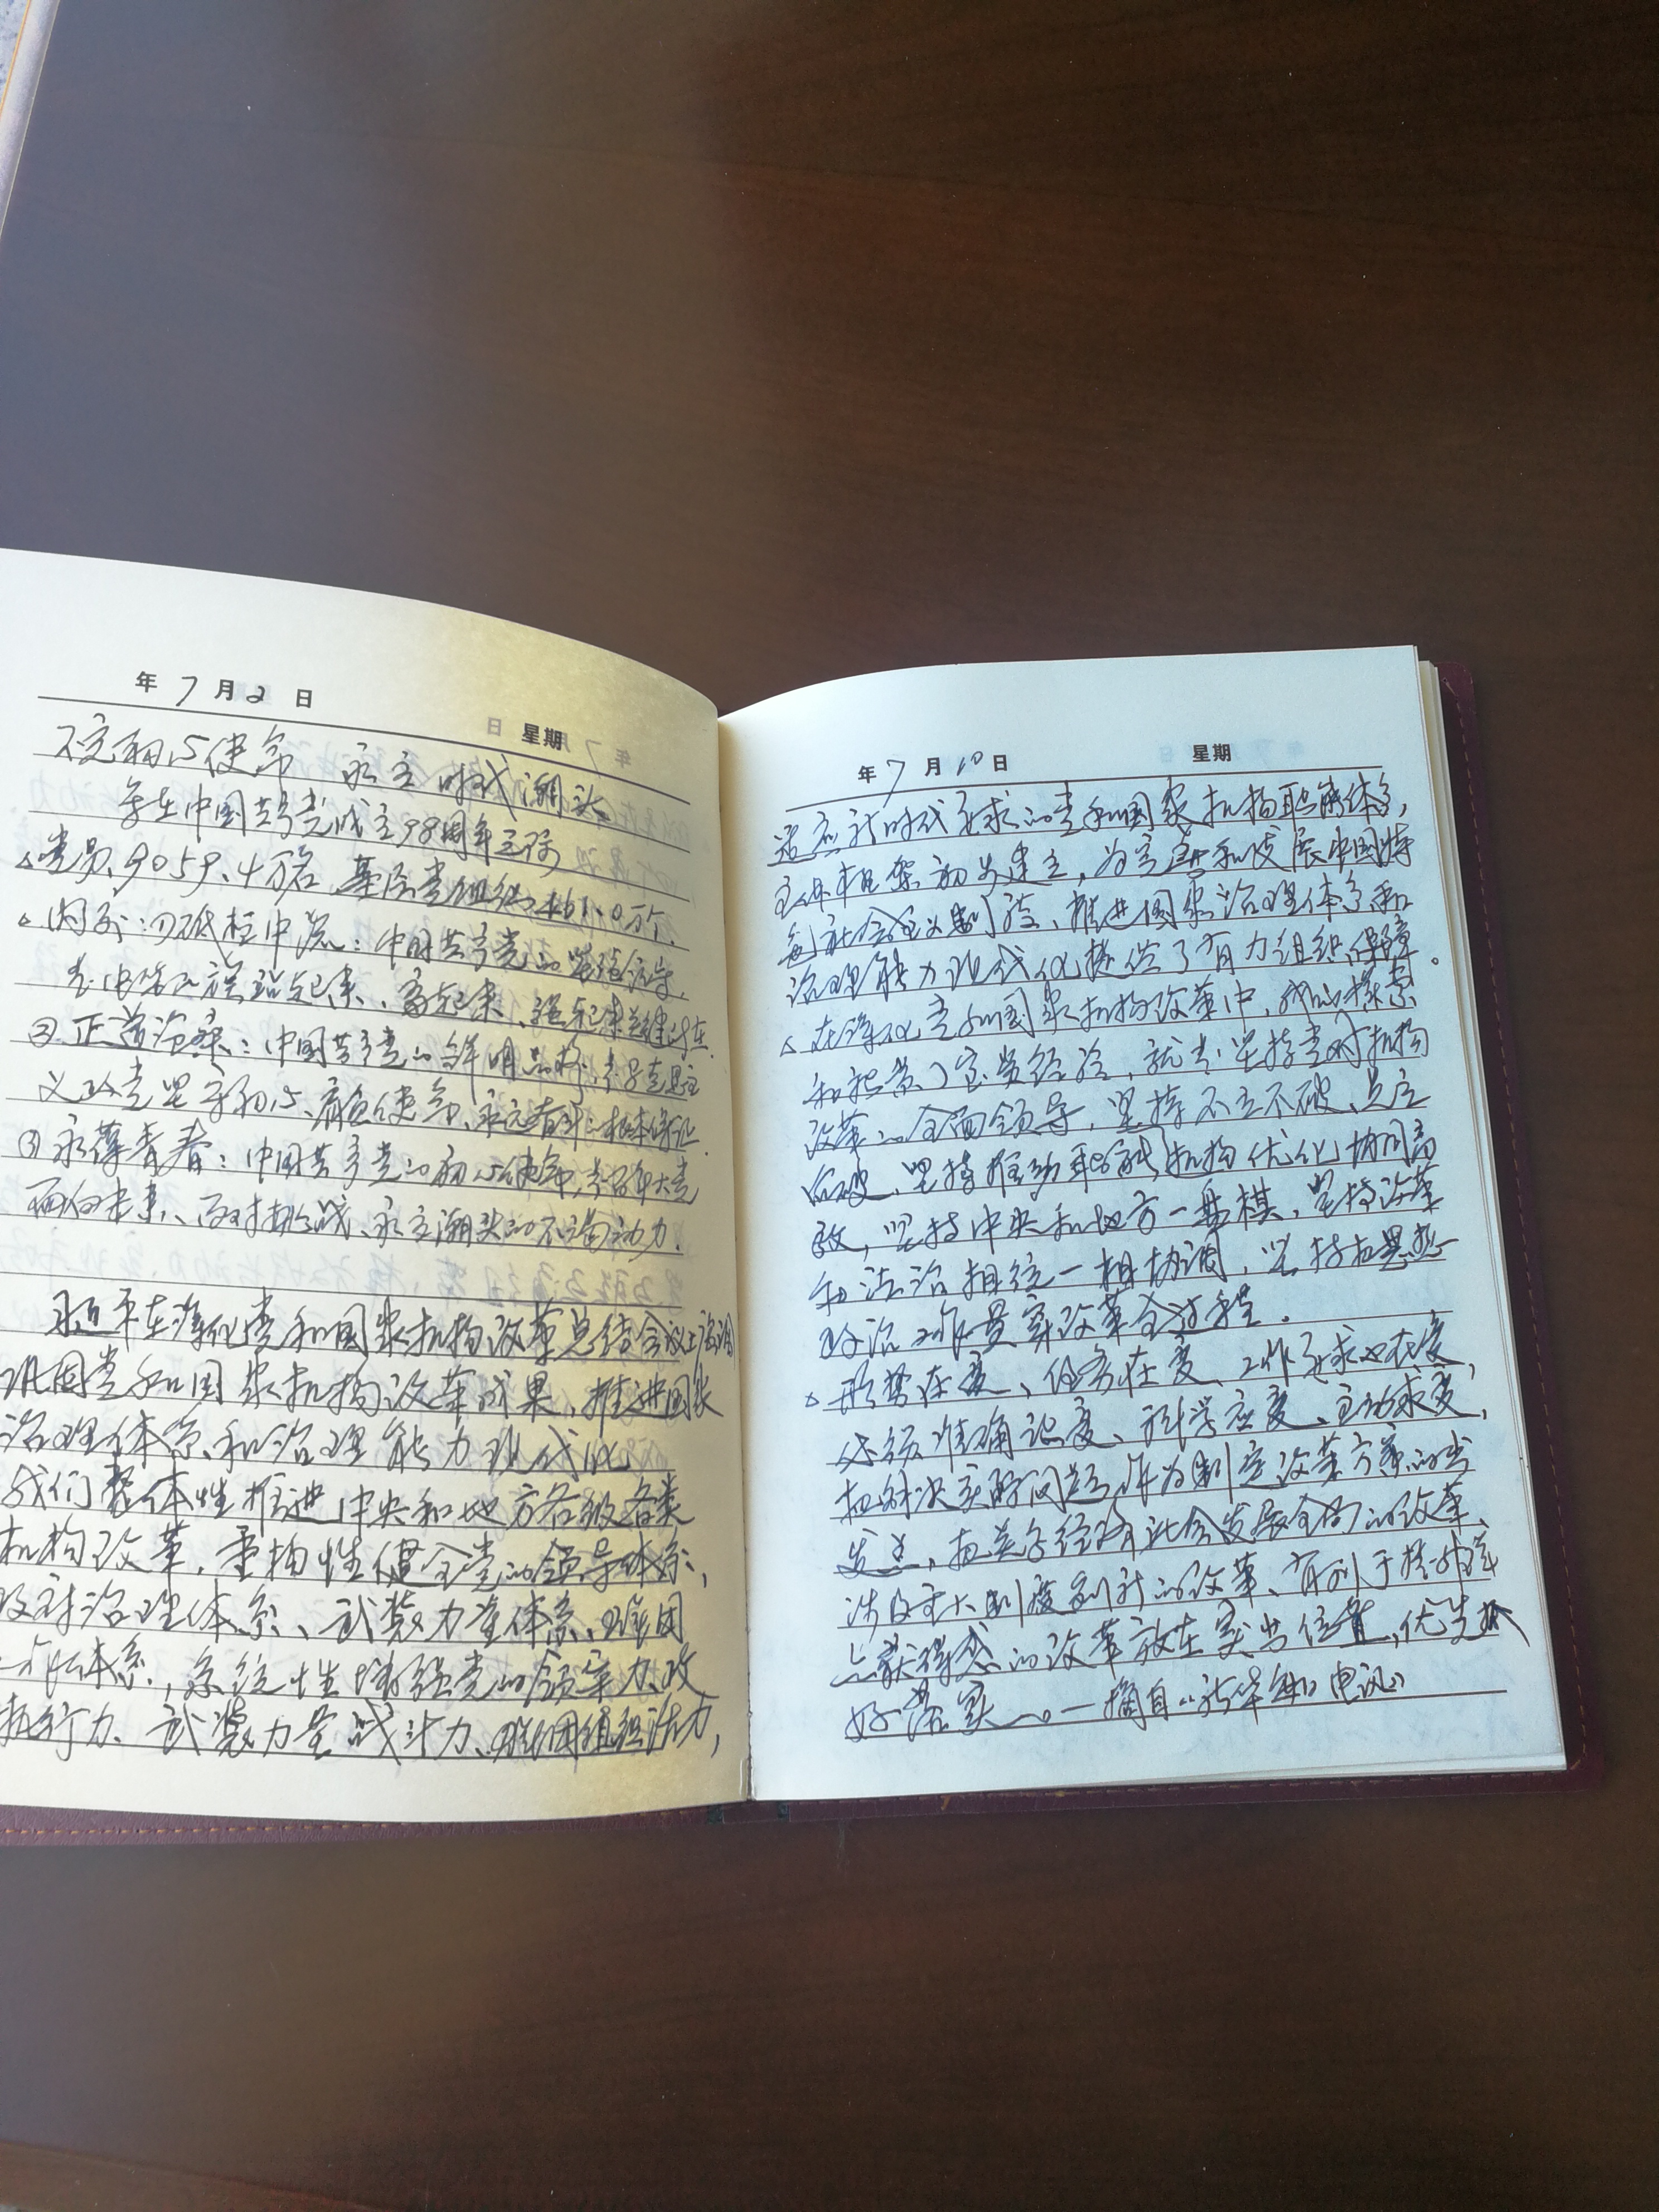 年7月2日 星期
不忘初心使命 永立时代潮头
写在中国共产党成立98周年之际
党员9059.4万名,基层党组织461.0万个.
内容:①砥柱中流:中国共产党的坚强领导,
是中华民族站起来、富起来、强起来关键所在.
②正道沧桑:中国共产党的鲜明品格,是马克思主
义政党坚守初心、肩负使命、永远奋斗的根本保证.
③永葆青春:中国共产党的初心使命,是百年大党
面向未来、面对挑战、永立潮头的不竭动力.
习近平在深化党和国家机构改革总结会议上强调
巩固党和国家机构改革成果,推进国家
治理体系和治理能力现代化
我们整体性推进中央和地方各级各类
机构改革,重构性健全党的领导体系,
政府治理体系、武装力量体系、群团
工作体系,系统性增强党的领导力、政
执行力、武装力量战斗力、群团组织活力,
年7月10日 星期
适应新时代要求的党和国家机构职能体系,
主体框架初步建立,为完善和发展中国特
色社会主义制度、推进国家治理体系和
治理能力现代化提供了有力组织保障。
在深化党和国家机构改革中,我们探索
和积累了宝贵经验,就是:坚持党对机构
改革的全面领导,坚持不立不破、先立
后破,坚持推动职能机构优化协同高
效,坚持中央和地方一盘棋,坚持改革
和法治相统一相协调,坚持把思想
政治工作贯穿改革全过程.
形势在变、任务在变、工作要求也在变,
必须准确识变、科学应变、主动求变,
把解决实际问题作为制定改革方案的出
发点,把关系经济社会发展全局的改革、
涉及重大制度创新的改革、有利于提升群
众获得感的改革放在突出位置,优先抓
好落实。—摘自《新华每日电讯》